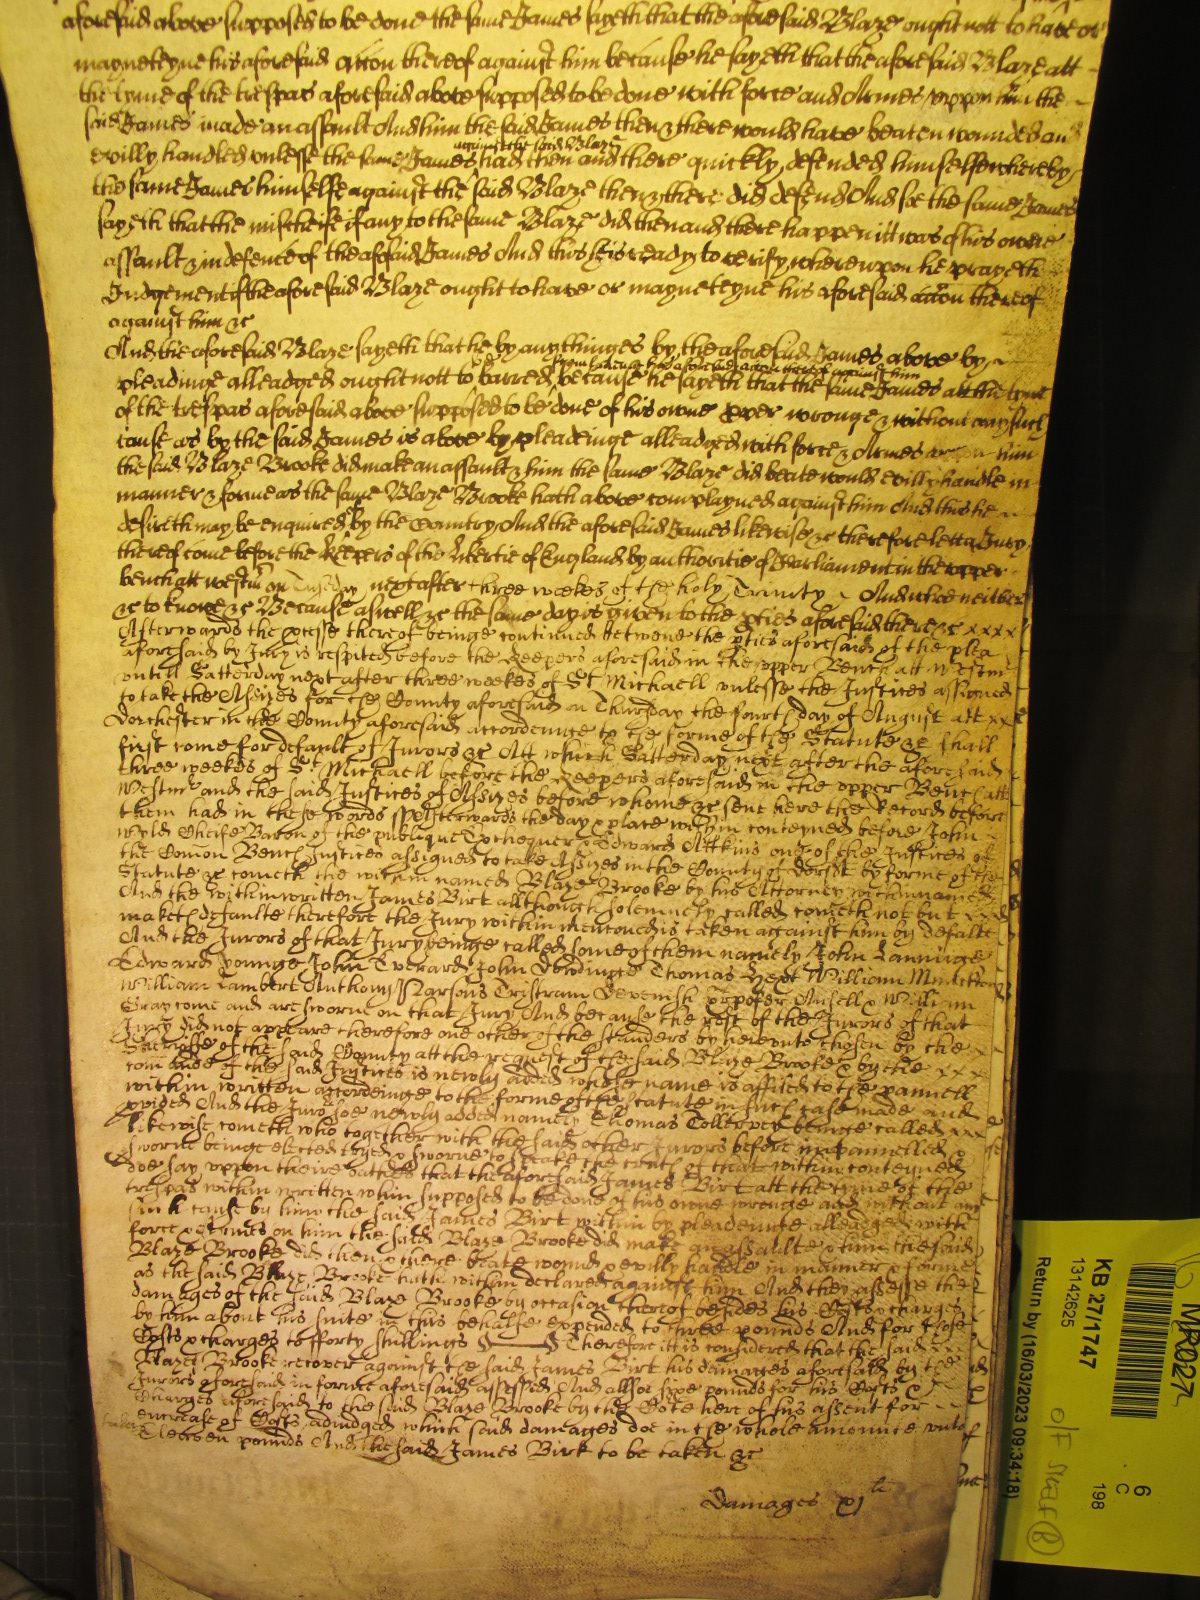 aforesaid above supposed to be done the same James sayeth that the aforesaid Blaze ought nott to have or
mayneteyne his aforesaid accon thereof against him because he sayeth that the aforesaid Blaze att
the tyme of the trespas aforesaid above supposed to be done with force and Armes uppon him the
said James made an assault And him the said James then & there would have beaten wounded and
evilly handled unlesse the same James had then and there quickly defended himselfe whereby
against the said Blaze
the same James himselfe against the said Blaze then & there did defend And soe the same James
sayeth that the mischeife if any to the same Blaze did then and there happen itt was of his owne
assault & in defence of the aforesaid James And this he is ready to verify whereupon he prayeth
Judgement if the aforesaid Blaze ought to have or mayneteyne his aforesaid accon thereof
against him &c
And the aforesaid Blaze sayeth that he by any thinges by the aforesaid James above by
from haveing his aforesaid accon thereof against him
pleadinge alleadged ought nott to be barred because he sayeth that the same James att the tyme
of the trespas aforesaid above supposed to be done of his owne pper wronge & without any such
cause as by the said James is above by pleadeinge alleadged with force & Armes uppon him
the said Blaze Brooke did make an assault & him the same Blaze did beate would evilly handle in
manner & forme as the same Blaze Brooke hath above complayned against him And this he
desireth may be enquired of by the Country And the aforesaid James likewise &c therefore lett a Jury
thereof come before the Keepers of the libertie of England by authoritie of Parliament in the upper
bench att westm on Tuesday next after three weekes of the holy Trinity And who neither
&c to knowe &c Because aswell &c the same day is given to the pties aforesaid there &c x x x x
Afterwards the pcesse thereof beinge continued betweene the pties aforesaid of the plea
aforesaid by Jury is respited before the Keepers aforesaid in the upper Bench att Westm
untill Satterday next after three weekes of St Michaell unlesse the Justices assigned
to take the Assizes for the County aforesaid on Thursday the fourth day of August att x x
Dorchester in the County aforesaid accordeinge to the forme of the Statute &c shall
first come for default of Jurors &c Att which Satterday next after the aforesaid
three weekes of St Michaell before the Keepers aforesaid in the upper Bench att
Westmr and the said Justices of Assizes before whome &c sent here the Record before
them had in these words ss Afterwards the day & place within conteyned before John
Wyld Cheife Baron of the publique Exchequer & Edward Attkins one of the Justices of
the Comon Bench Justices assigned to take Assizes in the County of Dorset by forme of the
Statute &c cometh the within named Blaze Brooke by his Attorney within named
And the within written James Birt allthough solemnely called cometh not but x x
maketh defaulte therefore the Jury within mentioned is taken against him by default
And the Jurors of that Jury beinge called some of them namely John Lanninge
Edward younge John Everard John Thomas William
William Lambert Anthony Parsons Tristram Devenish Xpofer Ansell & William
Gray come and are sworne on that Jury And because the rest of the Jurors of that
Jury did not appeare therefore one other of the standers by hereunto chosen by the
Sherriffe of the said County att the request of the said Blaze Brooke & by the x x x
comande of the said Justices is newly added whose name is affiled to the pannell
within written accordeinge to the forme of the Statute in such case made and
pvided And the Juror soe newly added namely Thomas beinge called x x
likewise cometh who together with the said other Jurors before impannelled &
sworne beinge elected tryed & sworne to speake the truth of that within conteyned
doe say uppon theire oathes that the aforesaid James Birt att the tyme of the
trespas within written within supposed to be done of his owne wronge and without any
such cause by him the said James Birt within by pleadeinge alleadged with
force & Armes on him the said Blaze Brooke did make an assaulte & him the said
Blaze Brooke did then & there beate wound & evilly handle in manner & forme
as the said Blaze Brooke hath within declared against him And they assesse the
damages of the said Blaze Brooke by occasion thereof besides his Costs & charges
by him about his suite in this behalfe expended to three pounds And for those
Costs & charges to fforty shillings Therefore itt is considered that the said
Blaze Brooke recover against the said James Birt his damages aforesaid by the
Jurors aforesaid in forme aforesaid assessed And allsoe six pounds for his Costs &
Charges aforesaid to the said Blaze Brooke by the Cort here of his assent for
encrease of Costs adiudged which said damages doe in the whole amounte unto
Eleaven pounds And the said James Birt to be taken &c
Damages xj li
KB 27/1747
13142625
Return by (16/03/2023 09:34:18)
198
6
C